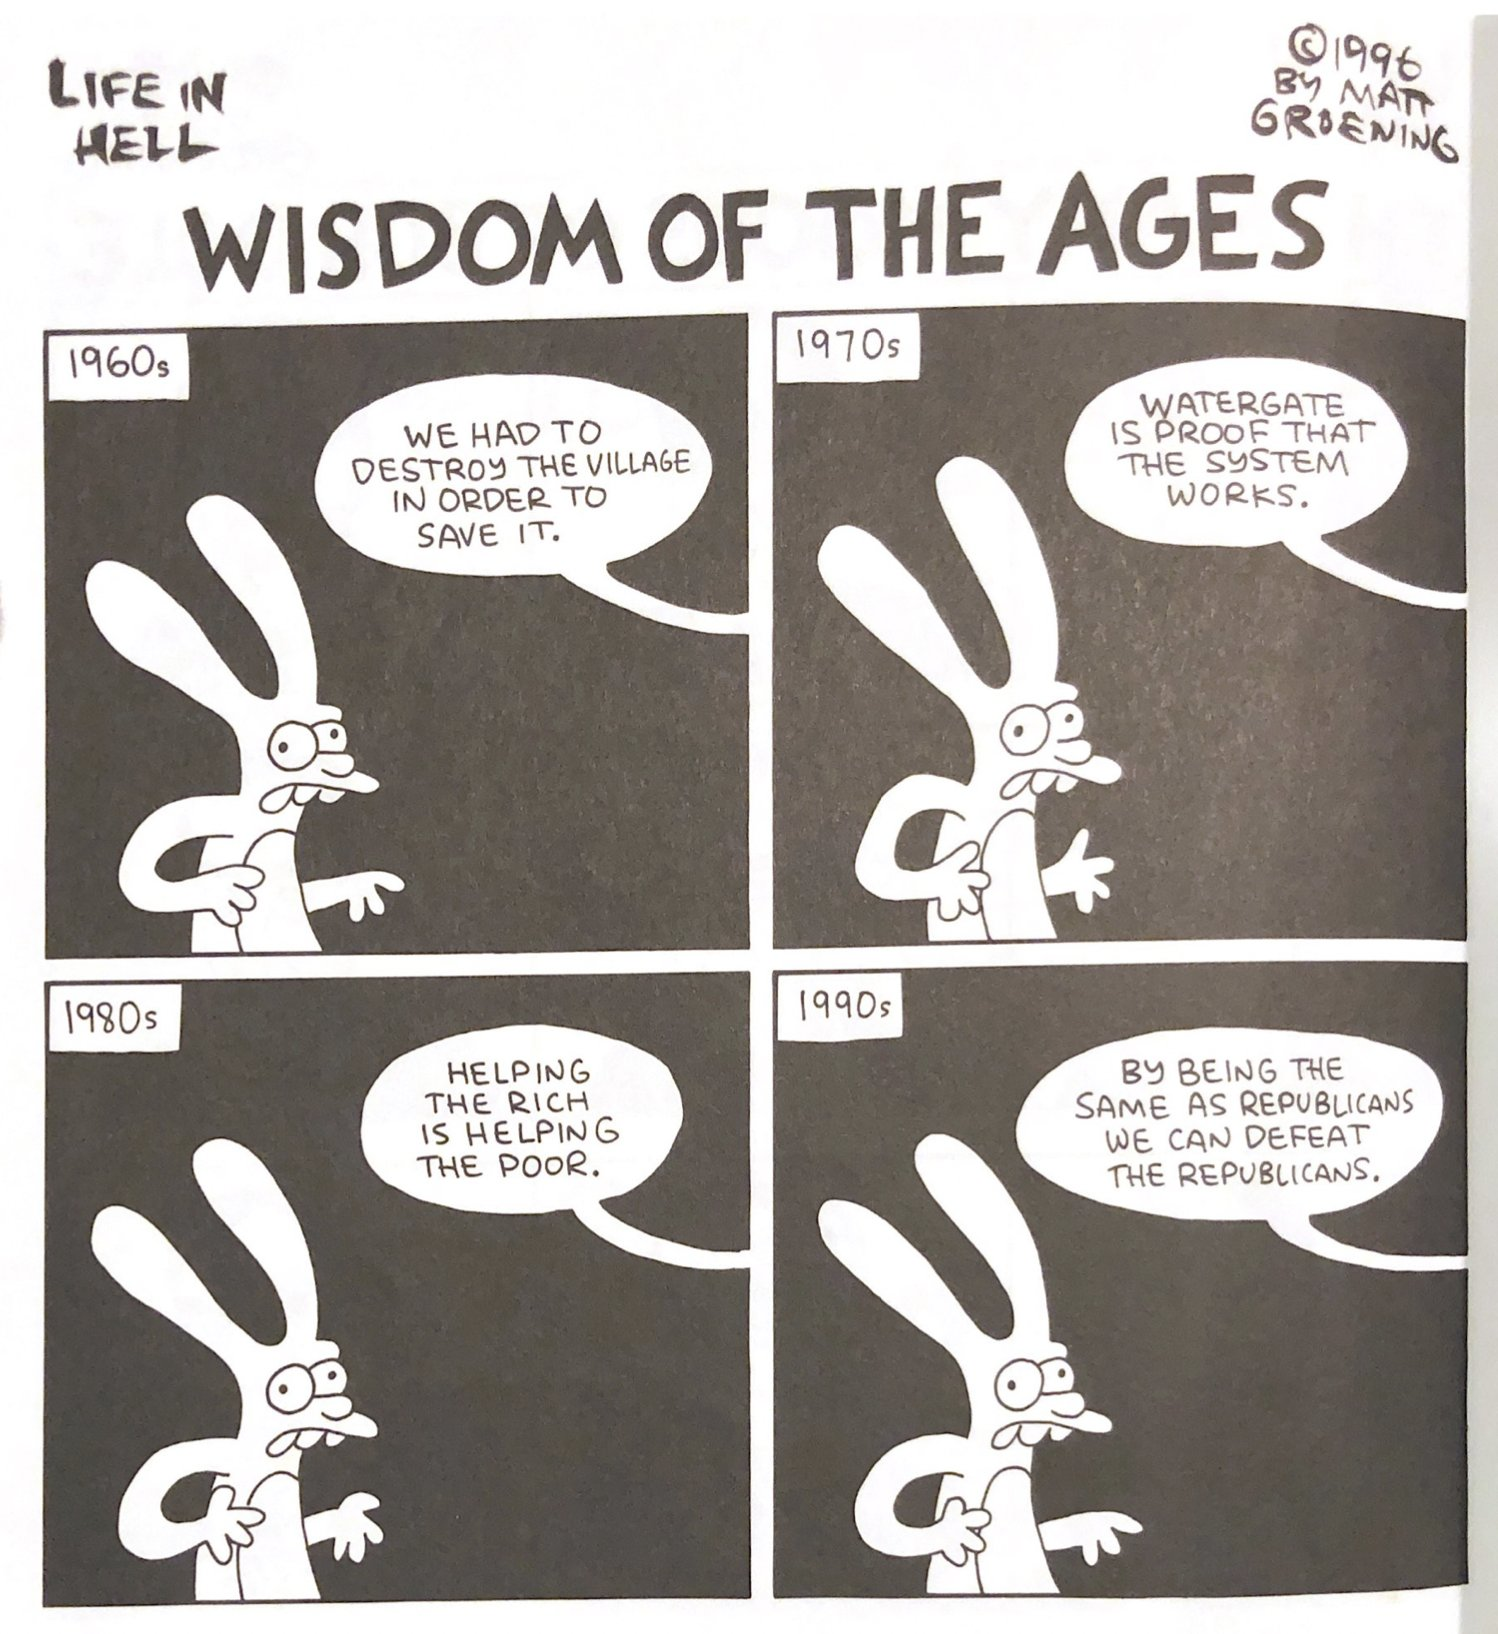 LIFE IN
HELL
©1996
BY MATT
GROENING
WISDOM OF THE AGES
1960s
WE HAD TO
DESTROY THE VILLAGE
IN ORDER TO
SAVE IT.
1970s
WATERGATE
IS PROOF THAT
THE SYSTEM
WORKS.
1980s
HELPING
THE RICH
IS HELPING
THE POOR.
1990s
BY BEING THE
SAME AS REPUBLICANS
WE CAN DEFEAT
THE REPUBLICANS.